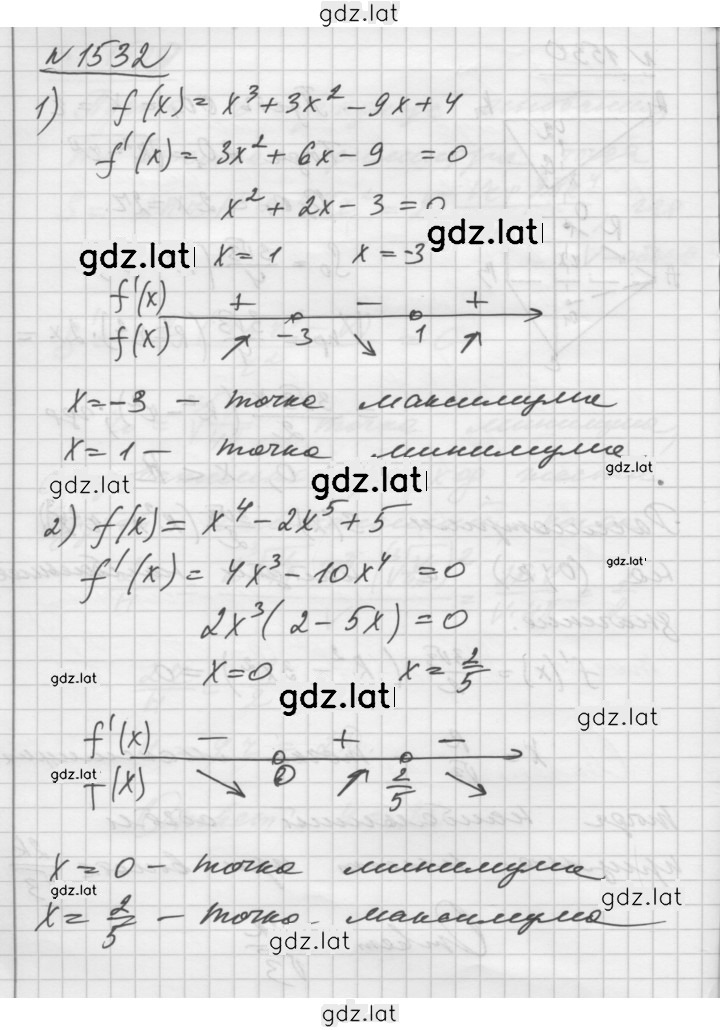 gdz.lat
№1532
1) f(x) = x³ + 3x² - 9x + 4
f'(x) = 3x² + 6x - 9 = 0
x² + 2x - 3 = 0
gdz.lat
gdz.lat
x = 1 x = -3
f'(x) + - +
f(x) -3 1
x = -3 - точка максимума
x = 1 - точка минимума
gdz.lat
gdz.lat
gdz.lat
2) f(x) = x⁴ - 2x⁵ + 5
f'(x) = 4x³ - 10x⁴ = 0
gdz.lat
2x³(2 - 5x) = 0
x = 0 x = 2/5
gdz.lat
gdz.lat
gdz.lat
f'(x) - + -
gdz.lat
f(x) 0 2/5
x = 0 - точка минимума
gdz.lat
gdz.lat
x = 2/5 - точка максимума
gdz.lat
gdz.lat